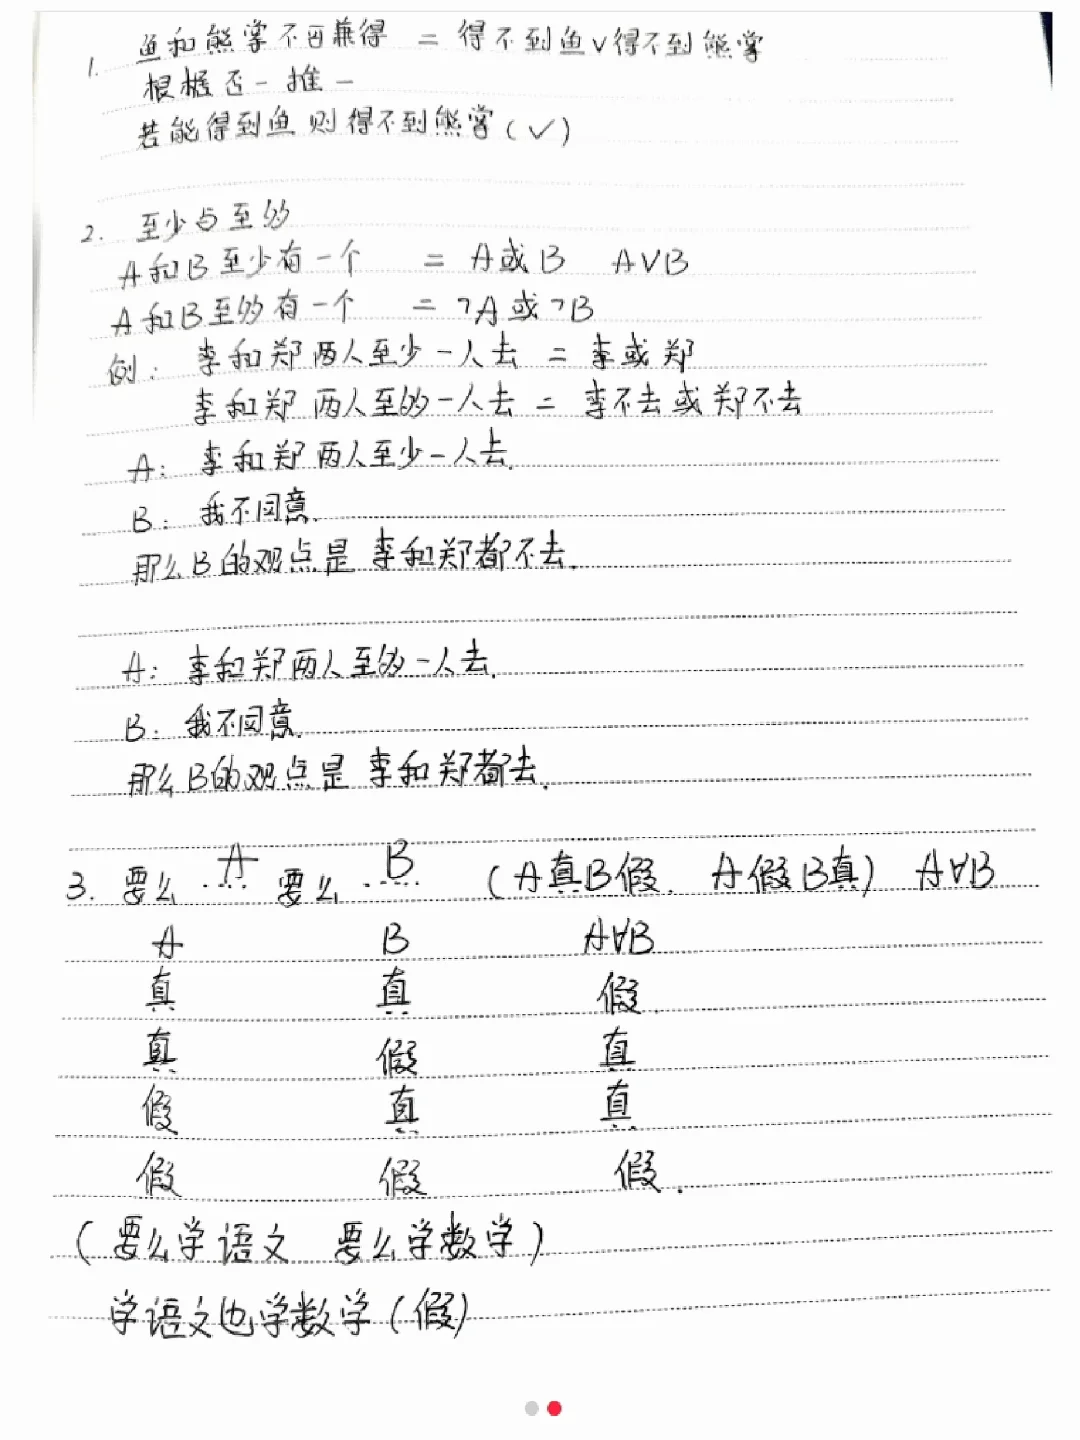 1. 鱼和熊掌不可兼得 = 得不到鱼∨得不到熊掌
根据否一推一
若能得到鱼则得不到熊掌(✓)
2. 至少与至多
A和B至少有一个 = A或B A∨B
A和B至多有一个 = ¬A或¬B
例: 李和郑两人至少一人去 = 李或郑
李和郑两人至多一人去 = 李不去或郑不去
A: 李和郑两人至少一人去.
B: 我不同意.
那么B的观点是李和郑都不去.
A: 李和郑两人至多一人去.
B: 我不同意.
那么B的观点是李和郑都去.
3. 要么…A 要么…B (A真B假. A假B真) A∀B
A B A∀B
真 真 假.
真 假 真
假 真 真
假 假 假.
(要么学语文 要么学数学)
学语文也学数学(假)